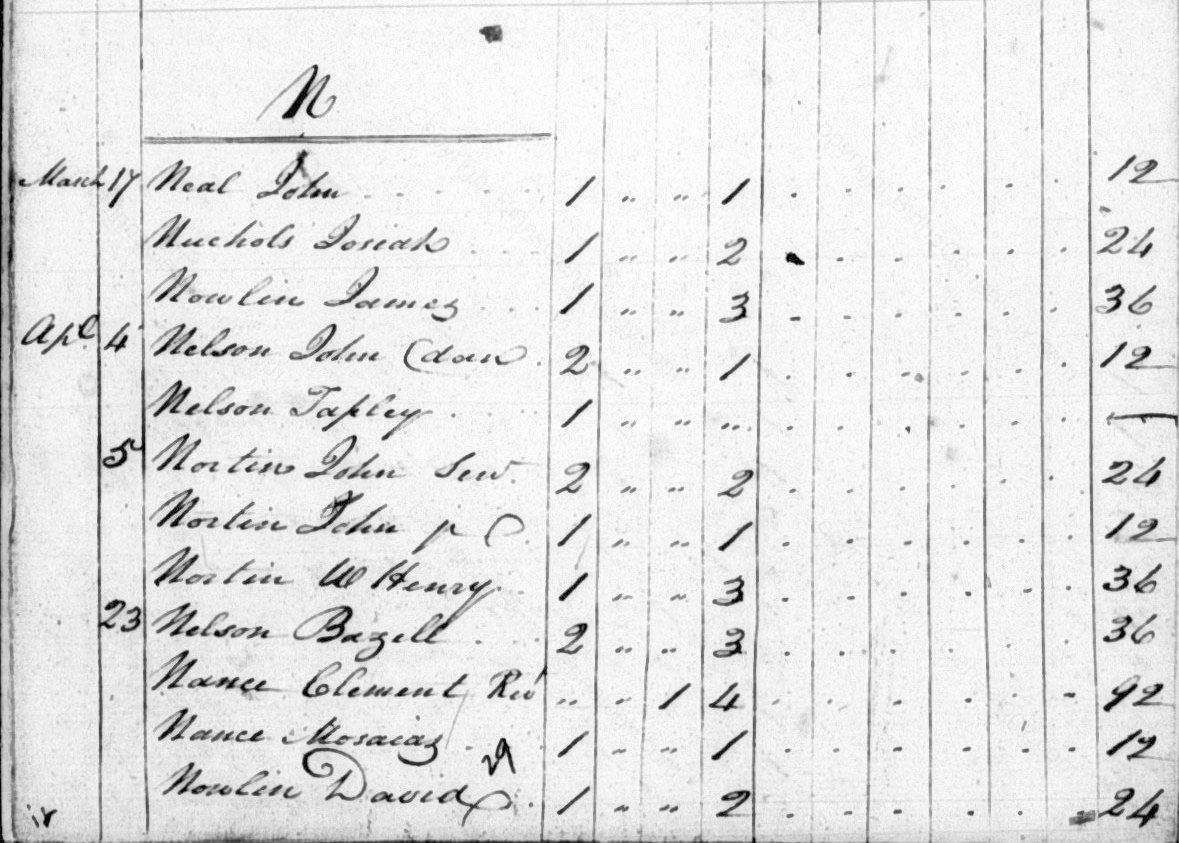 N
March 17 Neal John 1 " " 1 12
Nuchols Josiah 1 " " 2 24
Nowlin James 1 " " 3 36
Apl 4 Nelson John (dan 2 " " 1 12
Nelson Tapley 1 " " " —
5 Nortin John Sen. 2 " " 2 24
Nortin John 1 " " 1 12
Nortin W Henry 1 " " 3 36
23 Nelson Bazell 2 " " 3 36
Nance Clement " " 1 4 92
Nance Mosaias 1 " " 1 12
29
Nowlin David 1 " " 2 24